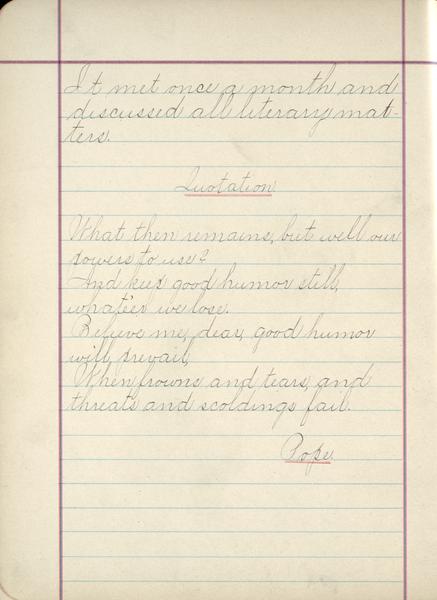 It met once a month and
discussed all literary mat-
ters.
Quotation
What then remains, but well our
powers to use?
And keep good humor still,
whate'er we lose.
Believe me, dear, good humor
will prevail,
When frowns and tears, and
threats and scoldings fail.
Pope